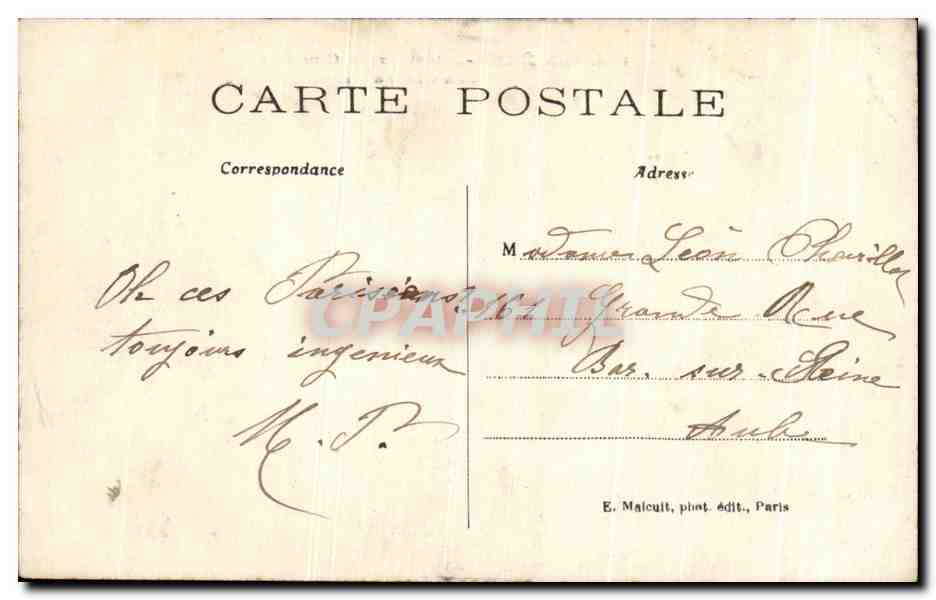 CARTE POSTALE
Correspondance
Adresse
Oh ces Parisiens
toujours ingenieux
M. P.
Madame Léon
161 Grande Rue
Bar. sur. Seine
Aube
E. Malcuit, phot. édit., Paris
CPAPHIL